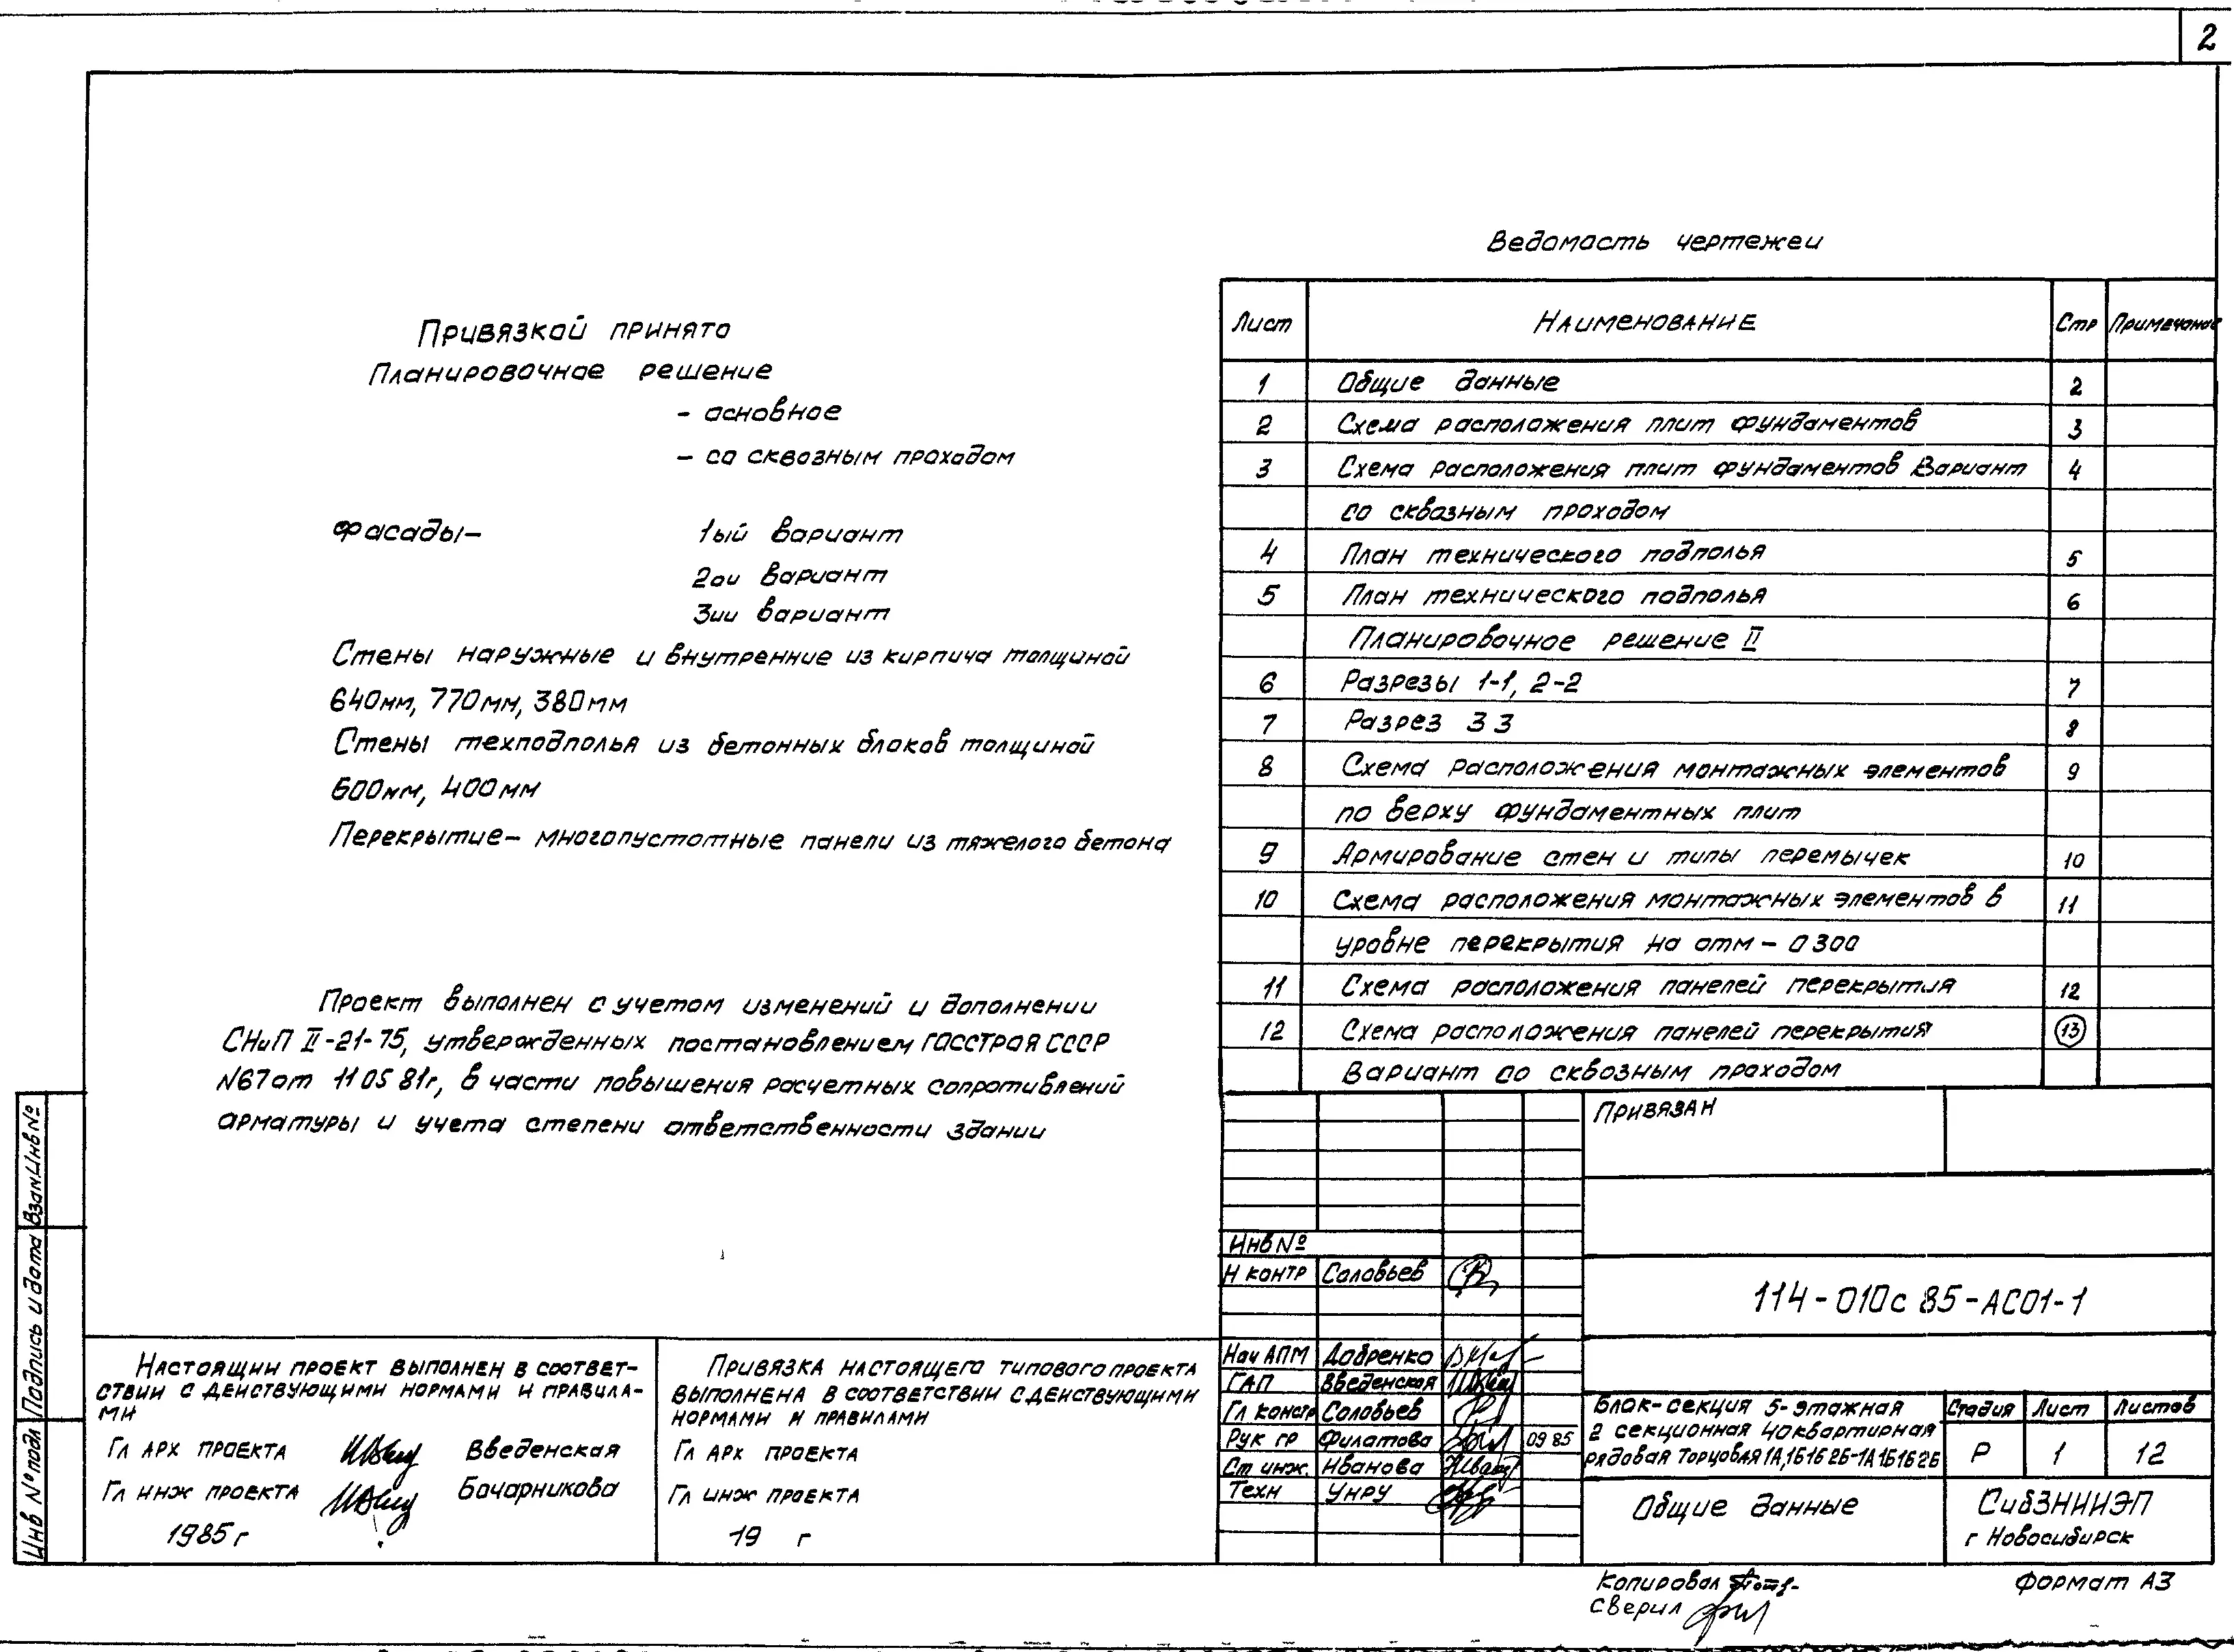 2
Ведомость чертежеи
Привязкой принято
Планировочное решение
- основное
- со сквозным проходом
Фасады- 1ый вариант
2ои вариант
3ии вариант
Стены наружные и внутренние из кирпича толщиной
640мм, 770мм, 380мм
Стены техподполья из бетонных блоков толщиной
600мм, 400мм
Перекрытие- многопустотные панели из тяжелого бетона
Проект выполнен с учетом изменений и дополнении
СНиП II-21-75, утвержденных постановлением ГОССТРОЯ СССР
N67от 11 05 81г, в части повышения расчетных сопротивлений
арматуры и учета степени ответственности здании
Лист Наименование Стр Примечание
1 Общие данные 2
2 Схема расположения плит фундаментов 3
3 Схема расположения плит фундаментов Вариант 4
со сквозным проходом
4 План технического подполья 5
5 План технического подполья 6
Планировочное решение II
6 Разрезы 1-1, 2-2 7
7 Разрез 3 3 8
8 Схема расположения монтажных элементов 9
по верху фундаментных плит
9 Армирование стен и типы перемычек 10
10 Схема расположения монтажных элементов в 11
уровне перекрытия на отм - 0 300
11 Схема расположения панелей перекрытия 12
12 Схема расположения панелей перекрытия 13
Вариант со сквозным проходом
Привязан
Инв №
Н контр Соловьев
114-010с 85-АС01-1
Нач АПМ Добренко
ГАП Введенская
Гл констр Соловьев
Рук гр Филатова 09 85
Ст инж. Иванова
Техн Унру
Блок-секция 5-этажная
2 секционная 40квартирная
рядовая торцовая 1А,1Б1Б2Б-1А1Б1Б2Б
Стадия Лист Листов
Р 1 12
Общие данные
СибЗНИИЭП
г Новосибирск
Настоящии проект выполнен в соответ-
ствии с деиствующими нормами и правила-
ми
Гл арх проекта Введенская
Гл инж проекта Бочарникова
1985г
Привязка настоящего типового проекта
выполнена в соответствии с деиствующими
нормами и правилами
Гл арх проекта
Гл инж проекта
19 г
Взам.Инв №
Подпись и дата
Инв № подл
Копировал
Сверил
Формат А3